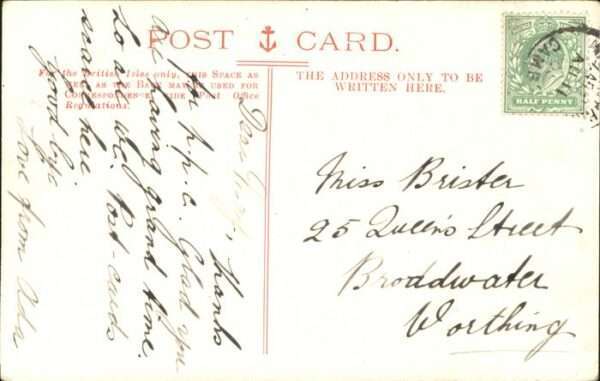 POST CARD.
For the British Isles only, THIS SPACE AS
WELL AS THE BACK MAY BE USED FOR
CORRESPONDENCE. Post Office
Regulations.
THE ADDRESS ONLY TO BE
WRITTEN HERE.
HALF PENNY
CAMB
AU 11
Dear, thanks
for p.p.c. Glad you
are having grand time.
So are we. Post-cards
scarce here
Good bye
Love from Ada
Miss Brister
25 Queen's Street
Broadwater
Worthing